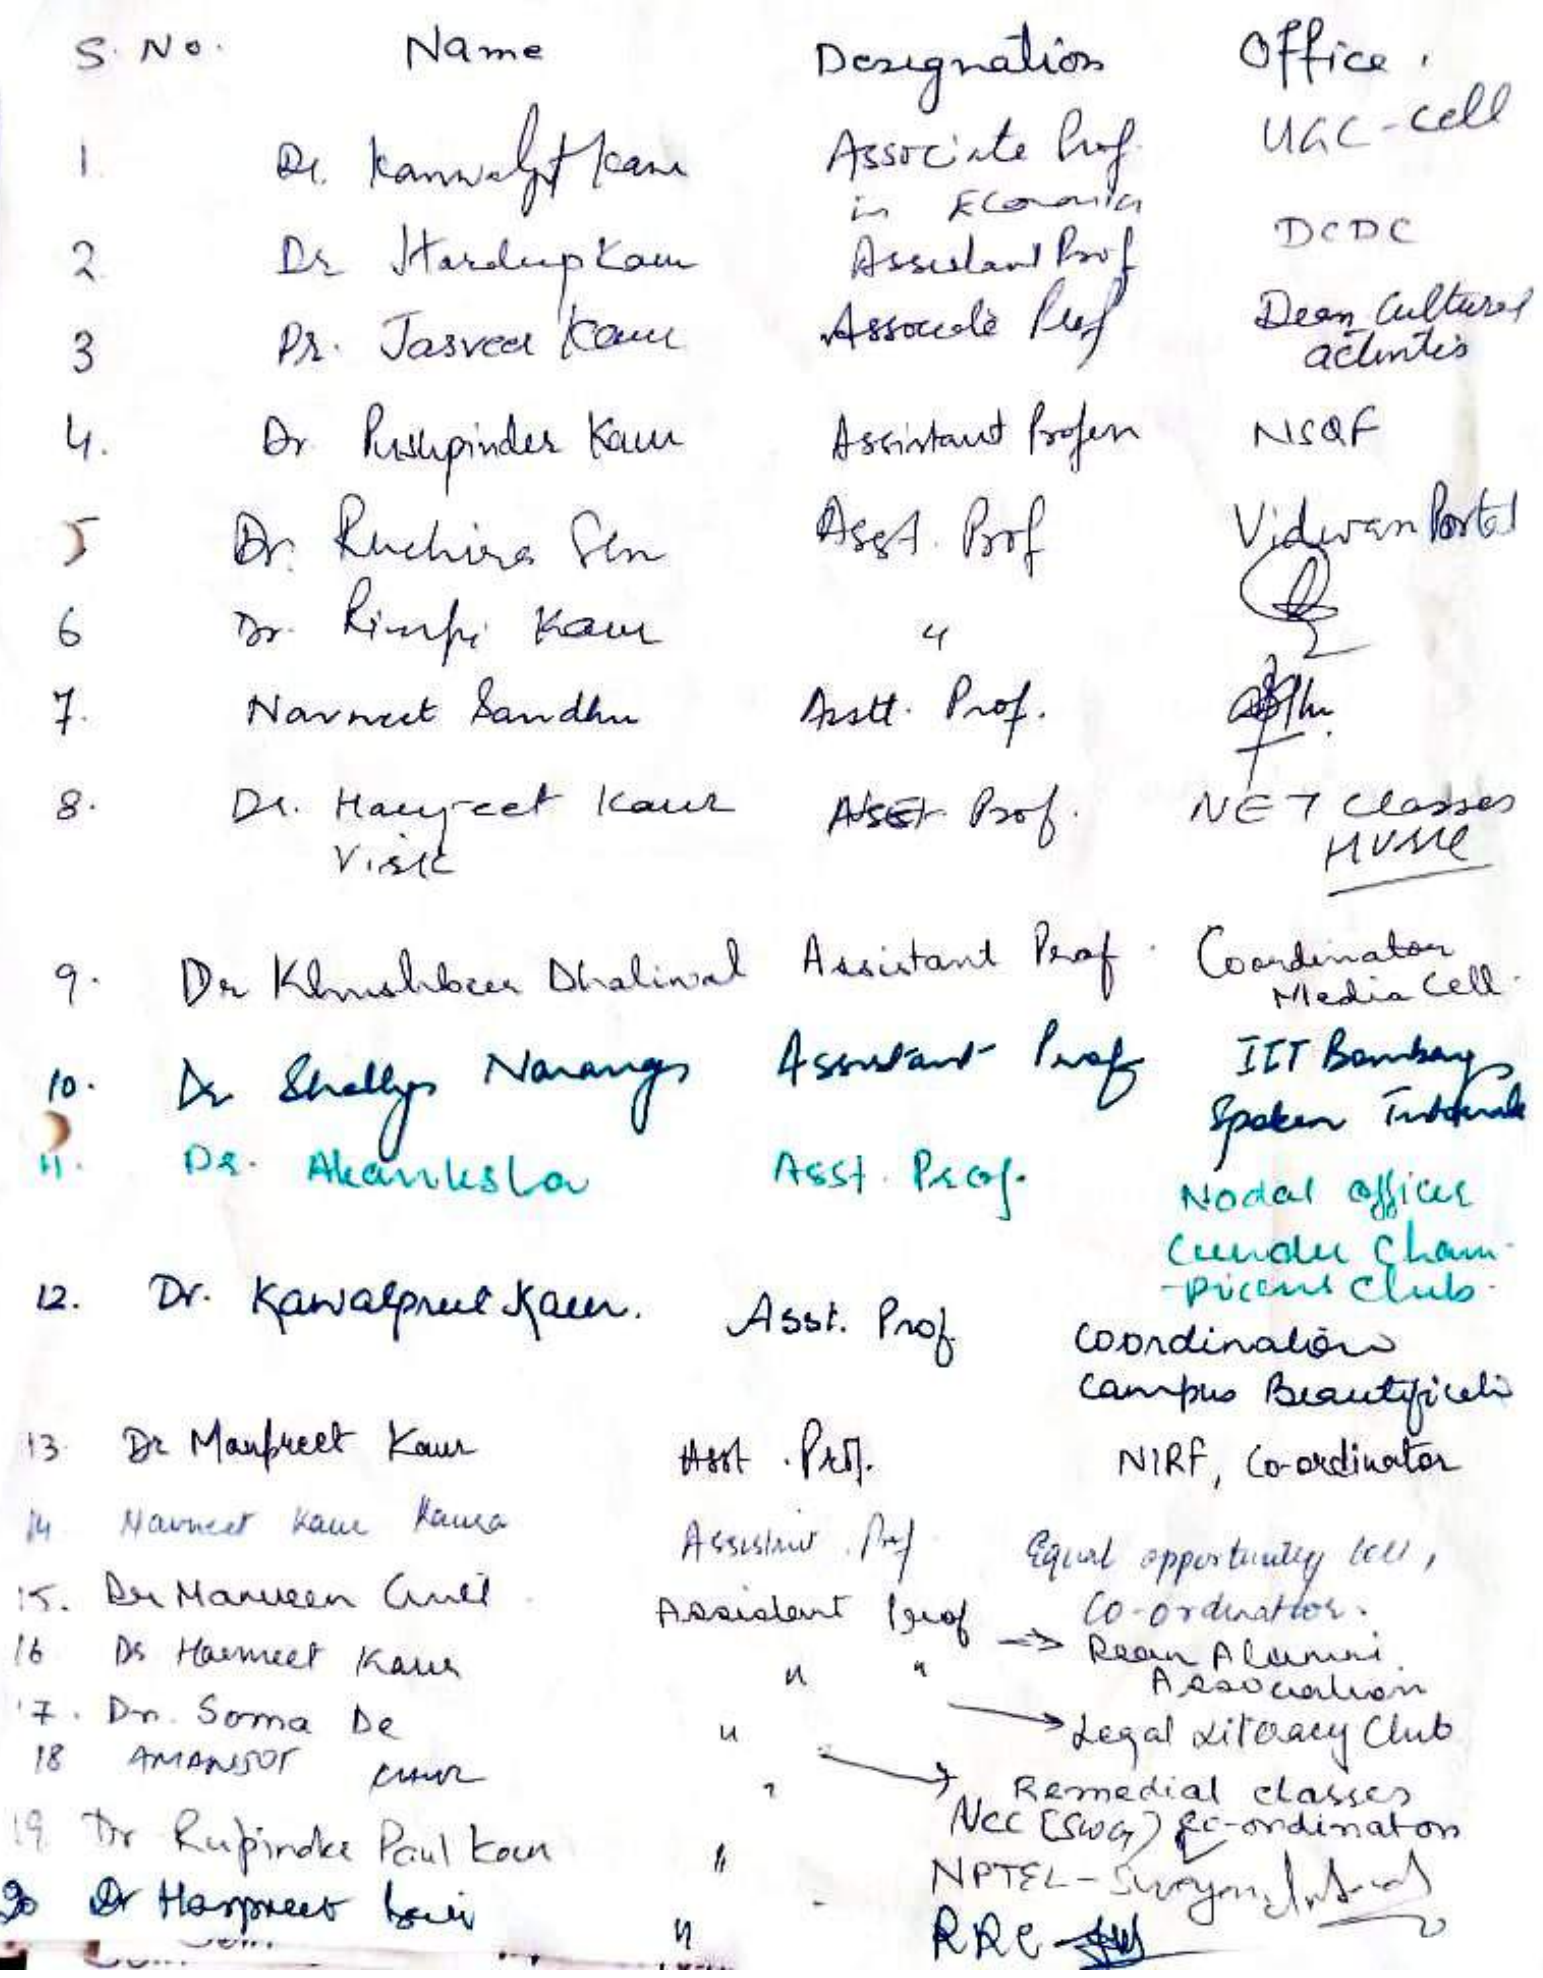 S. No. Name Designation Office.
1. Dr. Kanwaljit Kaur Associate Prof. UGC-Cell
in Economics
2 Dr Hardeep Kaur Assistant Prof DCDC
3 Dr. Jasveer Kaur Associate Prof Dean Cultural
activities
4. Dr. Pushpinder Kaur Assistant Profesn NSQF
5 Dr. Ruchira Sen Asst. Prof Vidwan Portal
6 Dr. Rimpi Kaur "
7. Navneet Sandhu Asstt. Prof.
8. Dr. Harjeet Kaur Asst Prof. NET Classes
Virk
9. Dr Khushbeer Dhaliwal Assistant Prof. Coordinator
Media Cell.
10. Dr Shelly Narang Assistant Prof IIT Bombay
Spoken Tutorials
11. Dr. Akanksha Asst. Prof. Nodal officer
Gender Cham-
-pions Club.
12. Dr. Kawalpreet Kaur. Asst. Prof Coordination
Campus Beautification
13. Dr Manpreet Kaur Asst. Prof. NIRF, Co-ordinator
14 Navneet Kaur Assistant Prof. Equal opportunity Cell,
Co-ordinator.
15. Dr Manveen Gill Assistant Prof => Dean Alumni
Association
16 Dr Harmeet Kaur " " → Legal Literacy Club
17. Dr. Soma De " → Remedial classes
18 AMANJOT KAUR " NCC (SWG) Co-ordinator
19. Dr Rupinder Paul Kaur " NPTEL-Swayam
20 Dr Harpreet " RRC